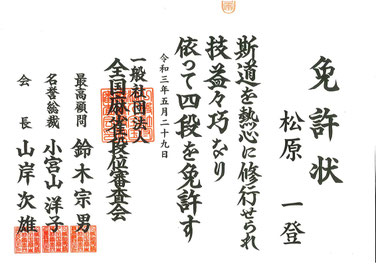 免許状
松原 一登
斯道を熱心に修行せられ
技益々巧なり
依って四段を免許す
令和三年五月二十九日
一般社団法人
全国麻雀段位審査会
最高顧問 鈴木宗男
名誉総裁 小宮山洋子
会長 山岸次雄